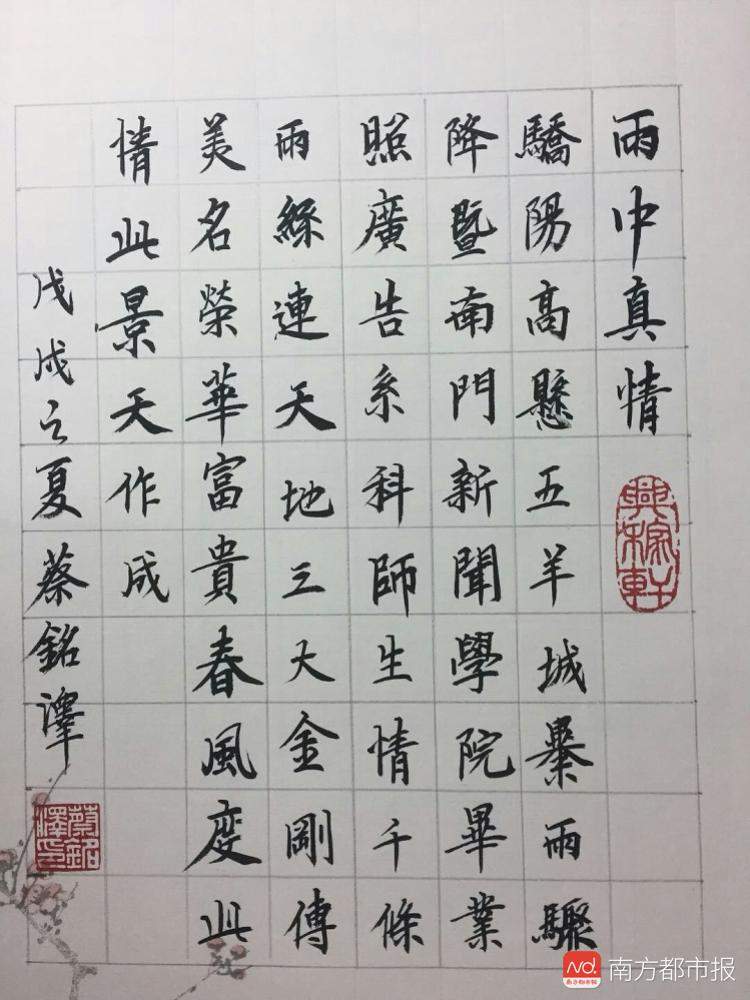 雨中真情
興稼軒
驕陽高懸五羊城暴雨驟
降暨南門新聞學院畢業
照廣告系科師生情千條
雨絲連天地三大金剛傳
美名榮華富貴春風度此
情此景天作成
戊戌之夏蔡銘澤
蔡銘澤印
Nd.
南方都市报
南方都市报